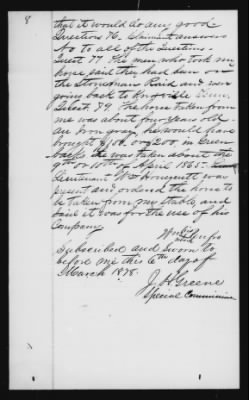 8
that it would do any good.
Questions 76. Claimant answers
No to all of the Questions.
Quest 77. The men who took my
horse said they had been on
the Stoneman Raid and were
going back to Knoxville, Tenn.
Quest. 79. The horse taken from
me was about four years old.
An iron gray, he would have
brought $100. or 200, in Green
backs. He was taken about the
9th or 10th of April 1865.
Lieutenant Wm Honeycutt was
present and ordered the horse to
be taken from my stable, and
said it was for the use of his
Company.
Wm his
mark
Subscribed and sworn to
before me this 6th day of
March 1878.
J. H. Greene
Special Commissioner